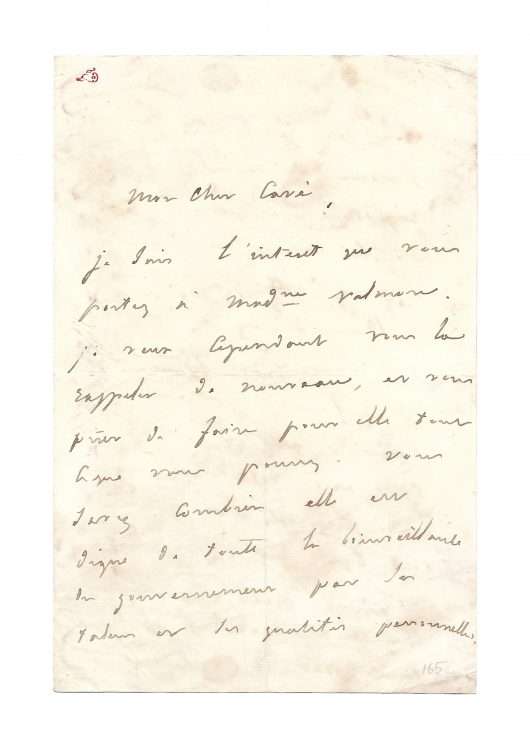 Mon cher Cavé,
je sais l'interêt que vous
portez à Mad.me Valmore.
je veux cependant vous la
rappeler de nouveau, et vous
prier de faire pour elle tout
ce que vous pourrez. Vous
savez combien elle est
digne de toute la bienveillance
du gouvernement par les
talens et les qualités personnelles.
165